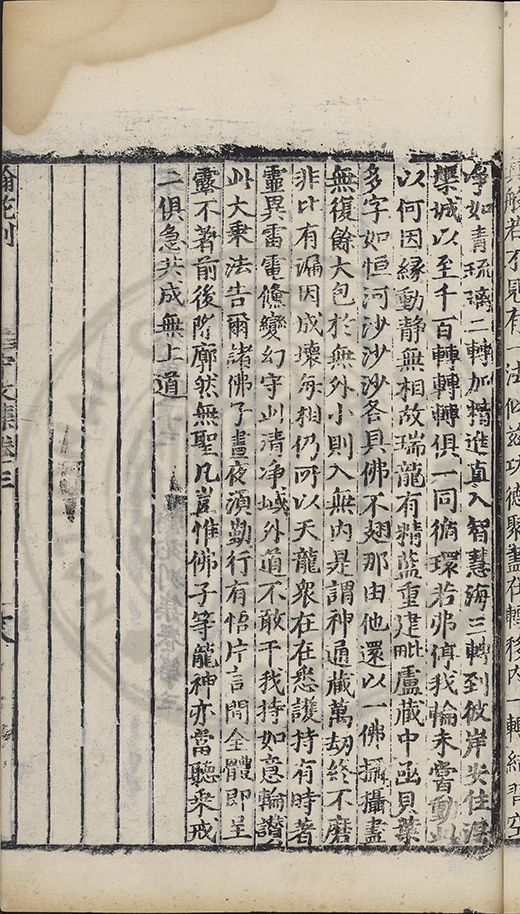 淨如青琉璃二轉加精進直入智慧海三轉到彼岸安住涅
槃城以至千百轉轉轉俱一同循環若弗停我輪未嘗動
以何因緣動靜無相故瑞龍有精藍重建毗盧藏中函貝葉
多字如恒河沙沙沙各具佛不翅那由他還以一佛攝攝盡
無復餘大包於無外小則入無內是謂神通藏萬劫終不磨
非比有漏因成壞每相仍所以天龍衆在在悉護持有時著
靈異雷電儵變幻守此清淨域外道不敢干我持如意輪讃
此大乗法告爾諸佛子晝夜須勤行有悟片言間全體即呈
露不著前後際廓然無聖凡豈惟佛子等龍神亦當聽乗戒
二俱急共成無上道